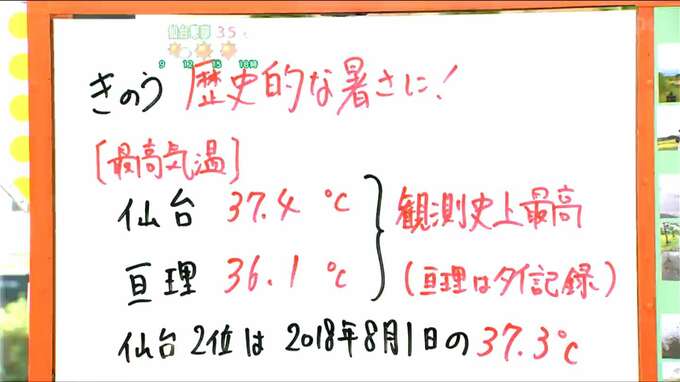 仙台東部 35
9 12 15 18時
きのう 歴史的な暑さに!
[最高気温]
仙台 37.4 ℃
亘理 36.1 ℃
観測史上最高
(亘理はタイ記録)
仙台2位は 2018年8月1日の 37.3℃